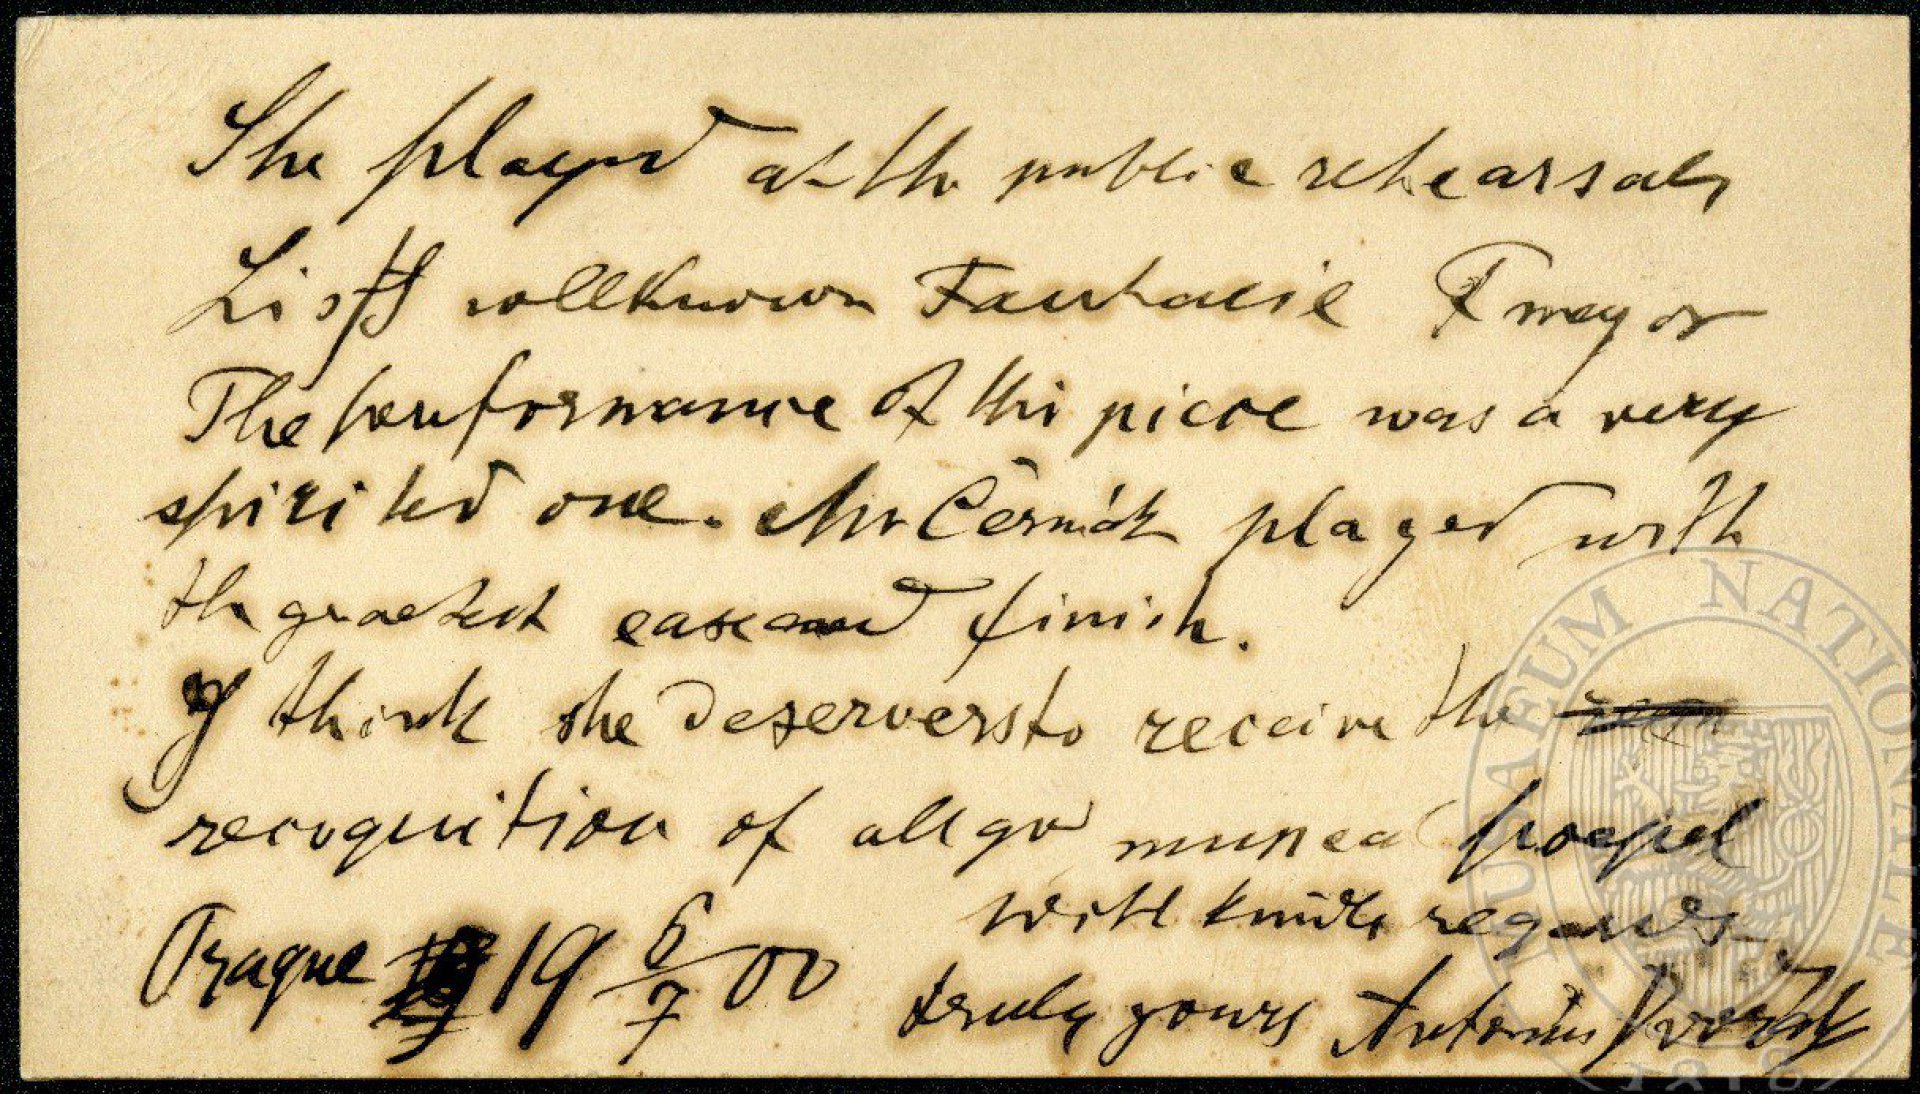 She played at the public rehearsals
Liszts wellknown Fantasie F mayor
The performance of this piece was a very
spirited one. Mr Černák played with
the greatest ease and finish.
I think she deservers to receive the
recognition of all musical
with kind regards
Prague 19 6/7 00
truly yours Antonín Dvořák
MUSAEUM NATIONALE
1818